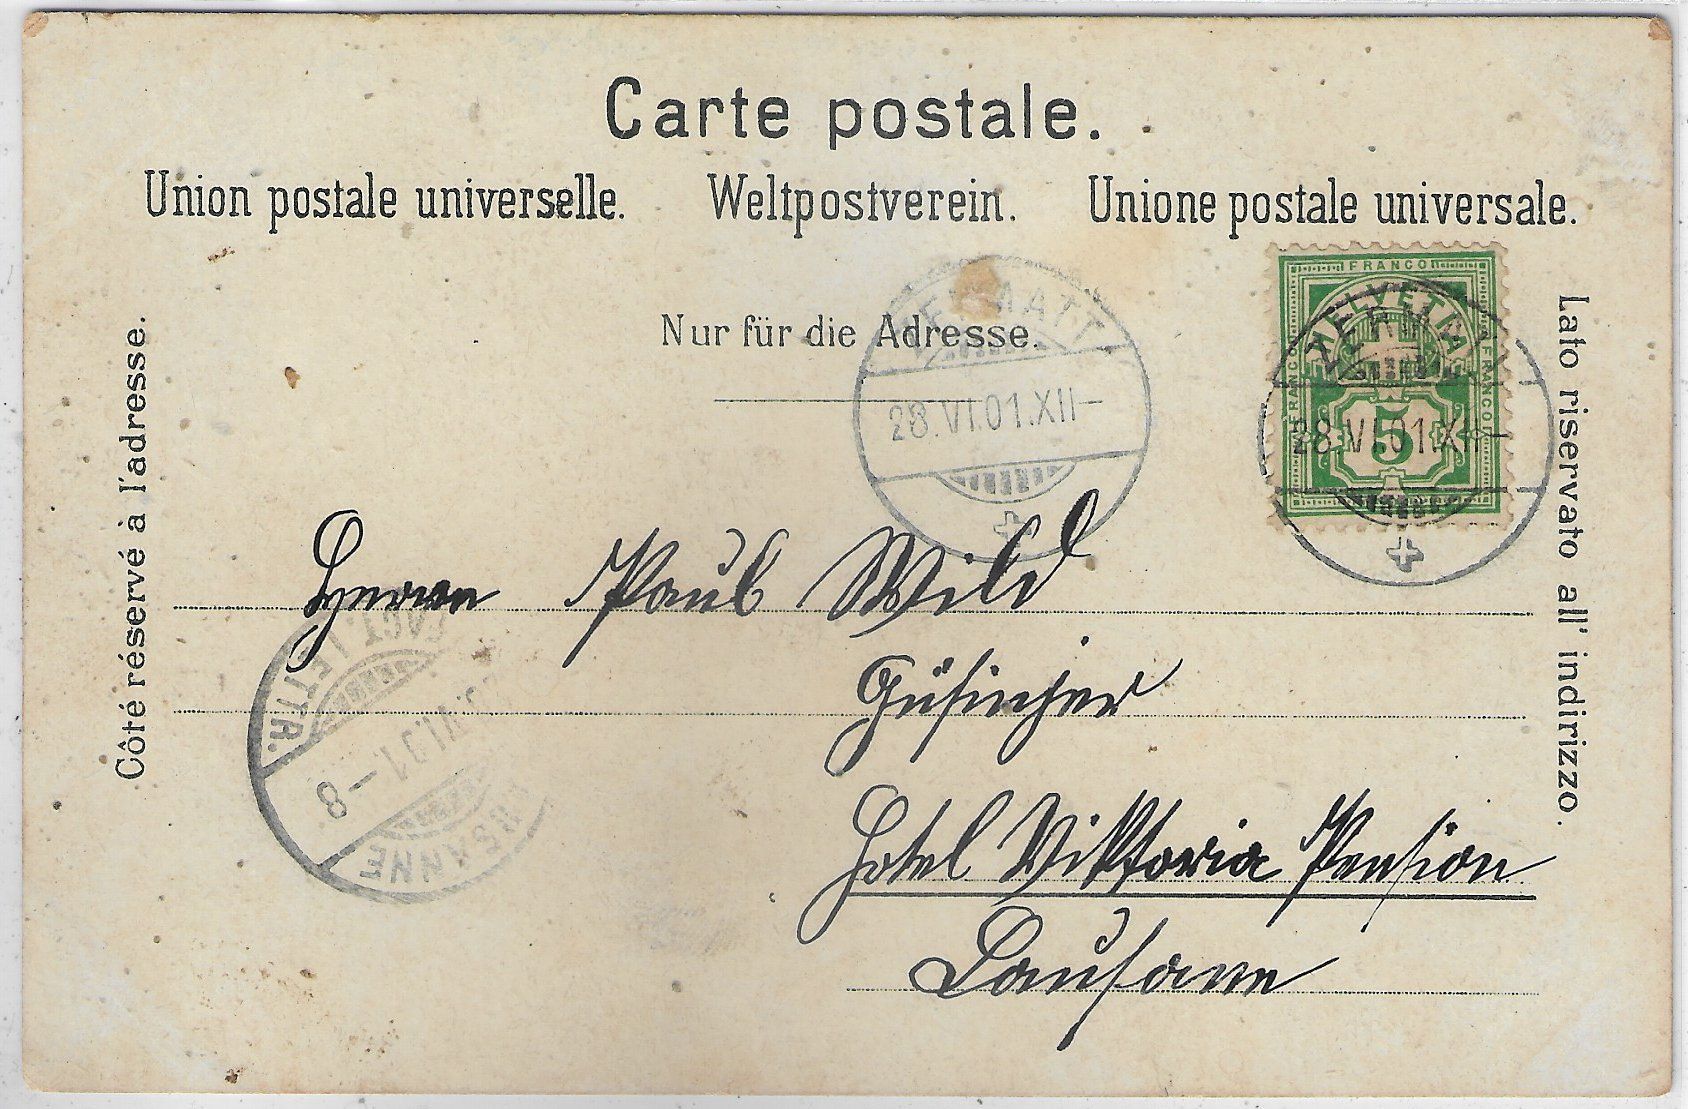 Carte postale.
Union postale universelle. Weltpostverein. Unione postale universale.
Nur für die Adresse.
Côté réservé à l'adresse.
Lato riservato all' indirizzo.
FRANCO
HELVETIA
FRANCO
FRANCO
5
ZERMATT
28.VI.01.XII–
ZERMATT
28.VI.01.XII–
Herrn Paul Wild
Hotel Viktoria Pension
Lausanne
LAUSANNE
VI.01–8
FACT. LETTR.